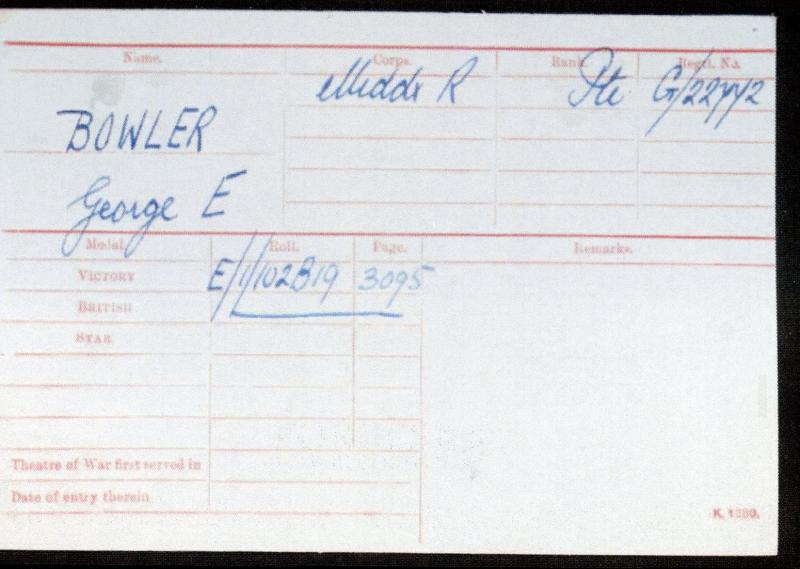 Name. Corps. Rank. Regtl. No.
Middx R Pte G/22772
BOWLER
George E
Medal. Roll. Page. Remarks.
VICTORY E/1/102B19 3095
BRITISH
STAR
Theatre of War first served in
Date of entry therein
K. 1380.